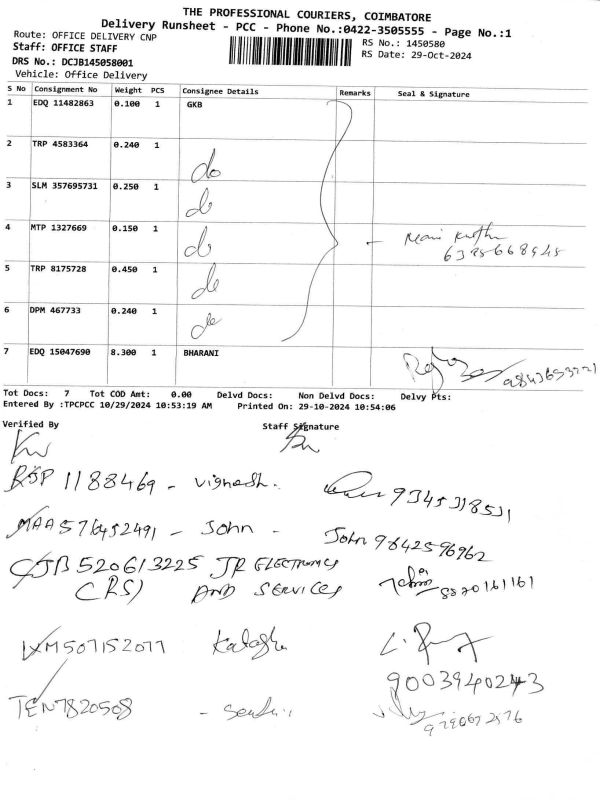 THE PROFESSIONAL COURIERS, COIMBATORE
Delivery Runsheet - PCC - Phone No.:0422-3505555 - Page No.:1
Route: OFFICE DELIVERY CNP
RS No.: 1450580
Staff: OFFICE STAFF
RS Date: 29-Oct-2024
DRS No.: DCJB145058001
Vehicle: Office Delivery
S No Consignment No Weight PCS Consignee Details Remarks Seal & Signature
1 EDQ 11482863 0.100 1 GKB
2 TRP 4583364 0.240 1 do
3 SLM 357695731 0.250 1 do
4 MTP 1327669 0.150 1 do
5 TRP 8175728 0.450 1 do
6 DPM 467733 0.240 1 do
7 EDQ 15047690 8.300 1 BHARANI
Tot Docs: 7 Tot COD Amt: 0.00 Delvd Docs: Non Delvd Docs: Delvy Pts:
Entered By :TPCPCC 10/29/2024 10:53:19 AM Printed On: 29-10-2024 10:54:06
Verified By Staff Signature
RSP 1188469 - Vignesh. 9345318531
MAA576452491 - John - John 9842596962
CJB 520613225 JR ELECTRONICS
(RS) AND SERVICES 8870161161
IXM507152077
9003940243
TEN7820508